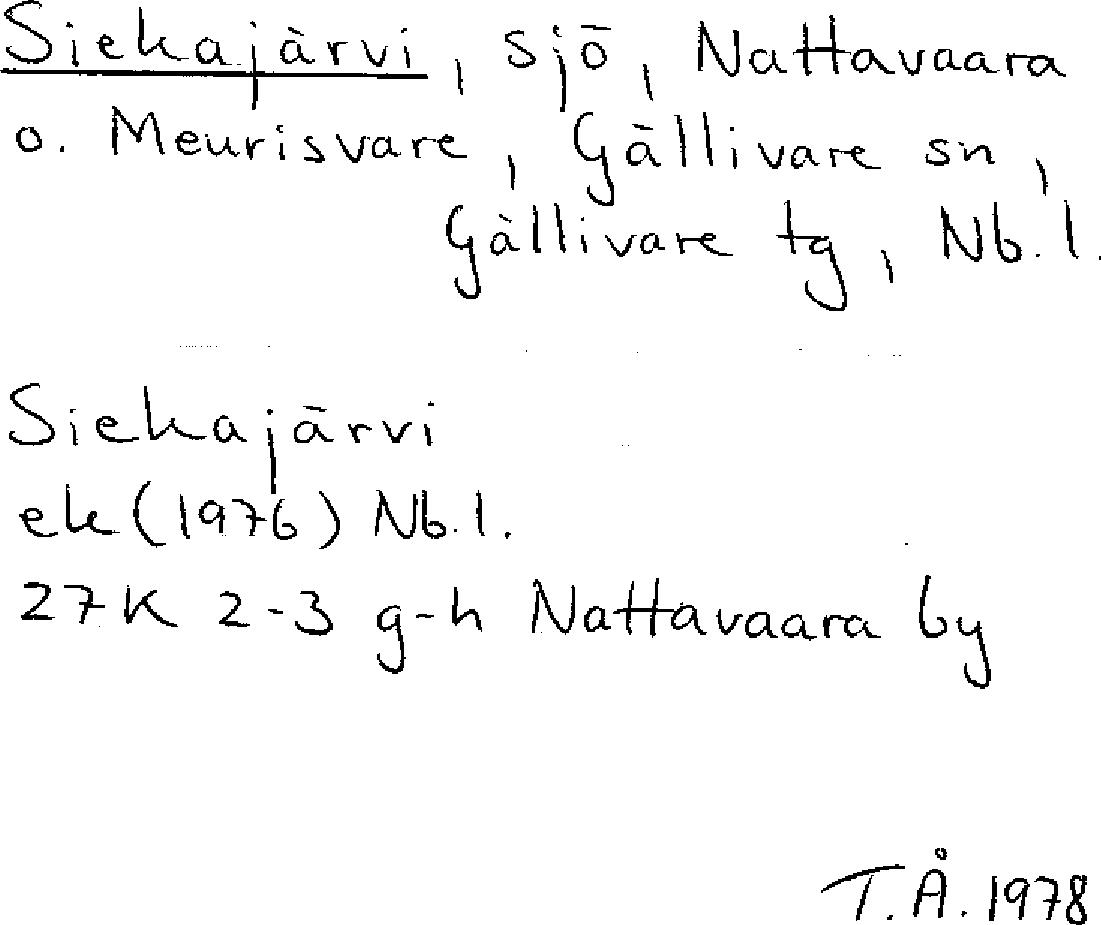 Siekajärvi, sjö, Nattavaara
o. Meurisvare, Gällivare sn,
Gällivare tg, Nb.l.
Siekajärvi
ek (1976) Nb.l.
27K 2-3 g-h Nattavaara by
T.Å. 1978